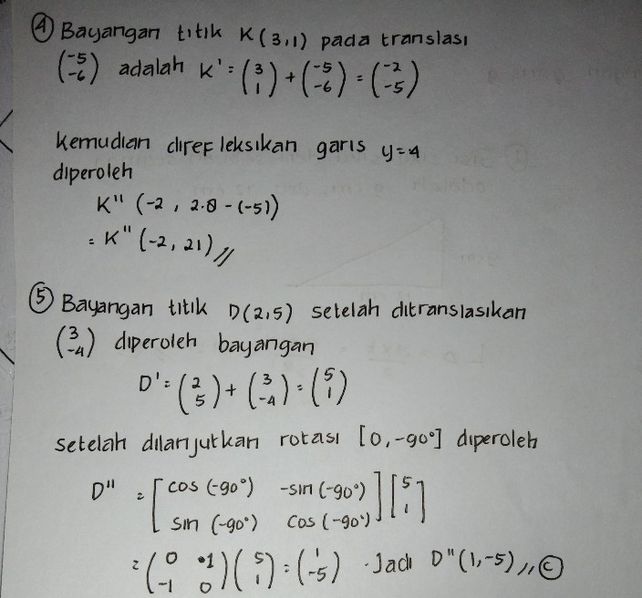 ④ Bayangan titik K(3,1) pada translasi
(-5 -6) adalah K' = (3 1) + (-5 -6) = (-2 -5)
Kemudian direfleksikan garis y=4
diperoleh
K" (-2, 2.8 - (-5))
= K" (-2, 21) //
⑤ Bayangan titik D(2,5) setelah ditranslasikan
(3 -4) diperoleh bayangan
D' = (2 5) + (3 -4) = (5 1)
setelah dilanjutkan rotasi [0, -90°] diperoleh
D" = [cos (-90°) -sin (-90°)
sin (-90°) cos (-90°)] [5 1]
= (0 1
-1 0) (5 1) = (1 -5) . Jadi D" (1,-5) // ⓒ